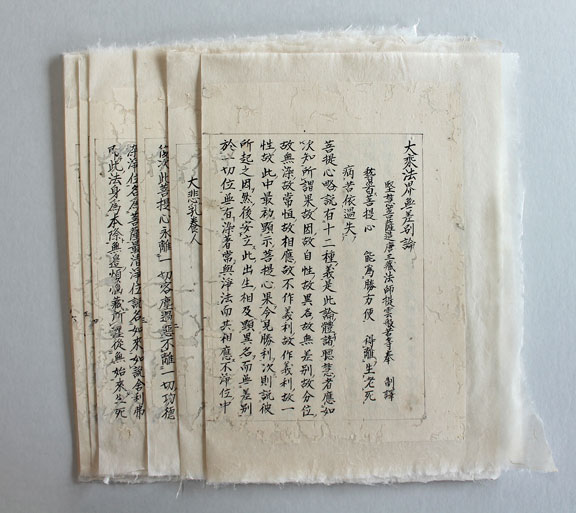 大乘法界無差別論
堅慧菩薩造唐三藏法師提雲般若等奉 制譯
稽首菩提心 能為勝方便 得離生老死
病苦依過失
菩提心略說有十二種義是此論體諸聰慧者應如
次知所謂果故因故自性故異名故無差別故分位
故無染故常恒故相應故不作義利故作義利故一
性故此中最初顯示菩提心果令見勝利次則說彼
所起之因然後安立此出生相及顯異名而無差別
於一切位無有染者常與淨法而共相應不淨位中
大悲乳養人
復次此菩提心永離一切客塵過惡不離一切功德
染淨住名為菩薩最清淨位說名如來如說舍利弗
即此法身為本際無邊煩惱藏所纏從無始來生死